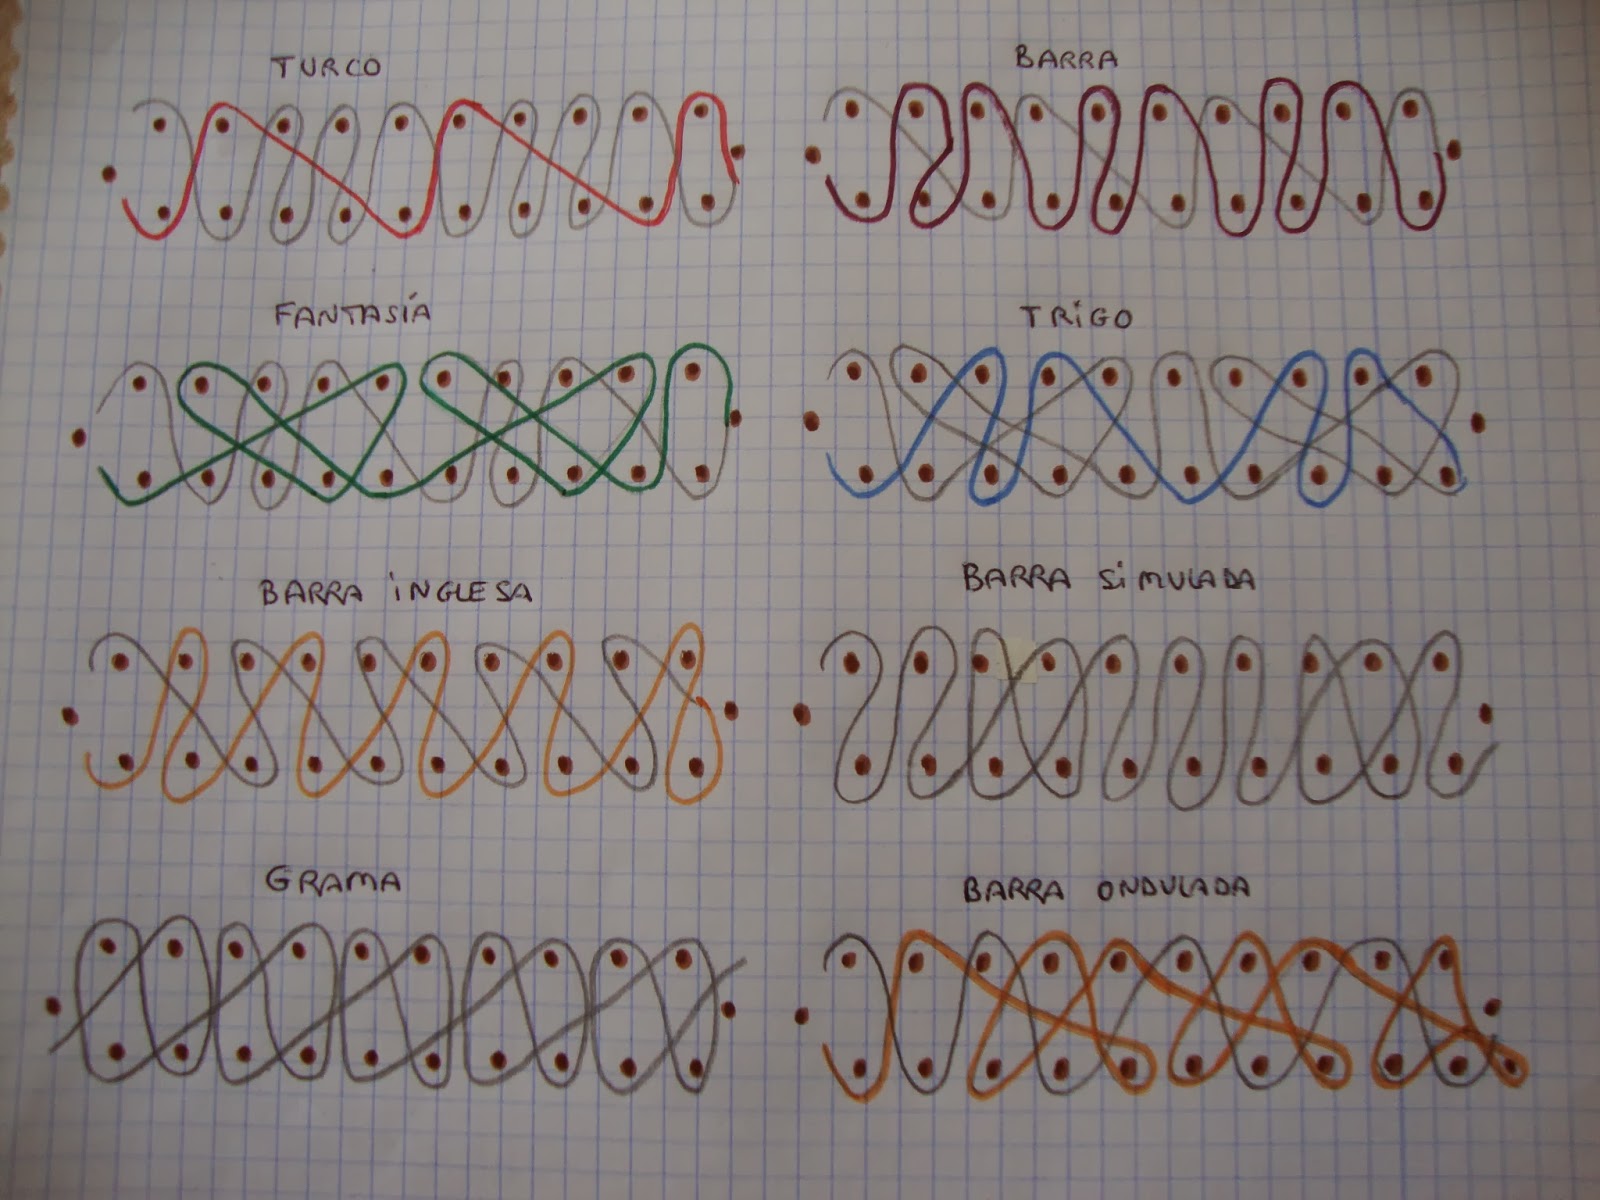 TURCO
BARRA
FANTASÍA
TRIGO
BARRA INGLESA
BARRA SIMULADA
GRAMA
BARRA ONDULADA